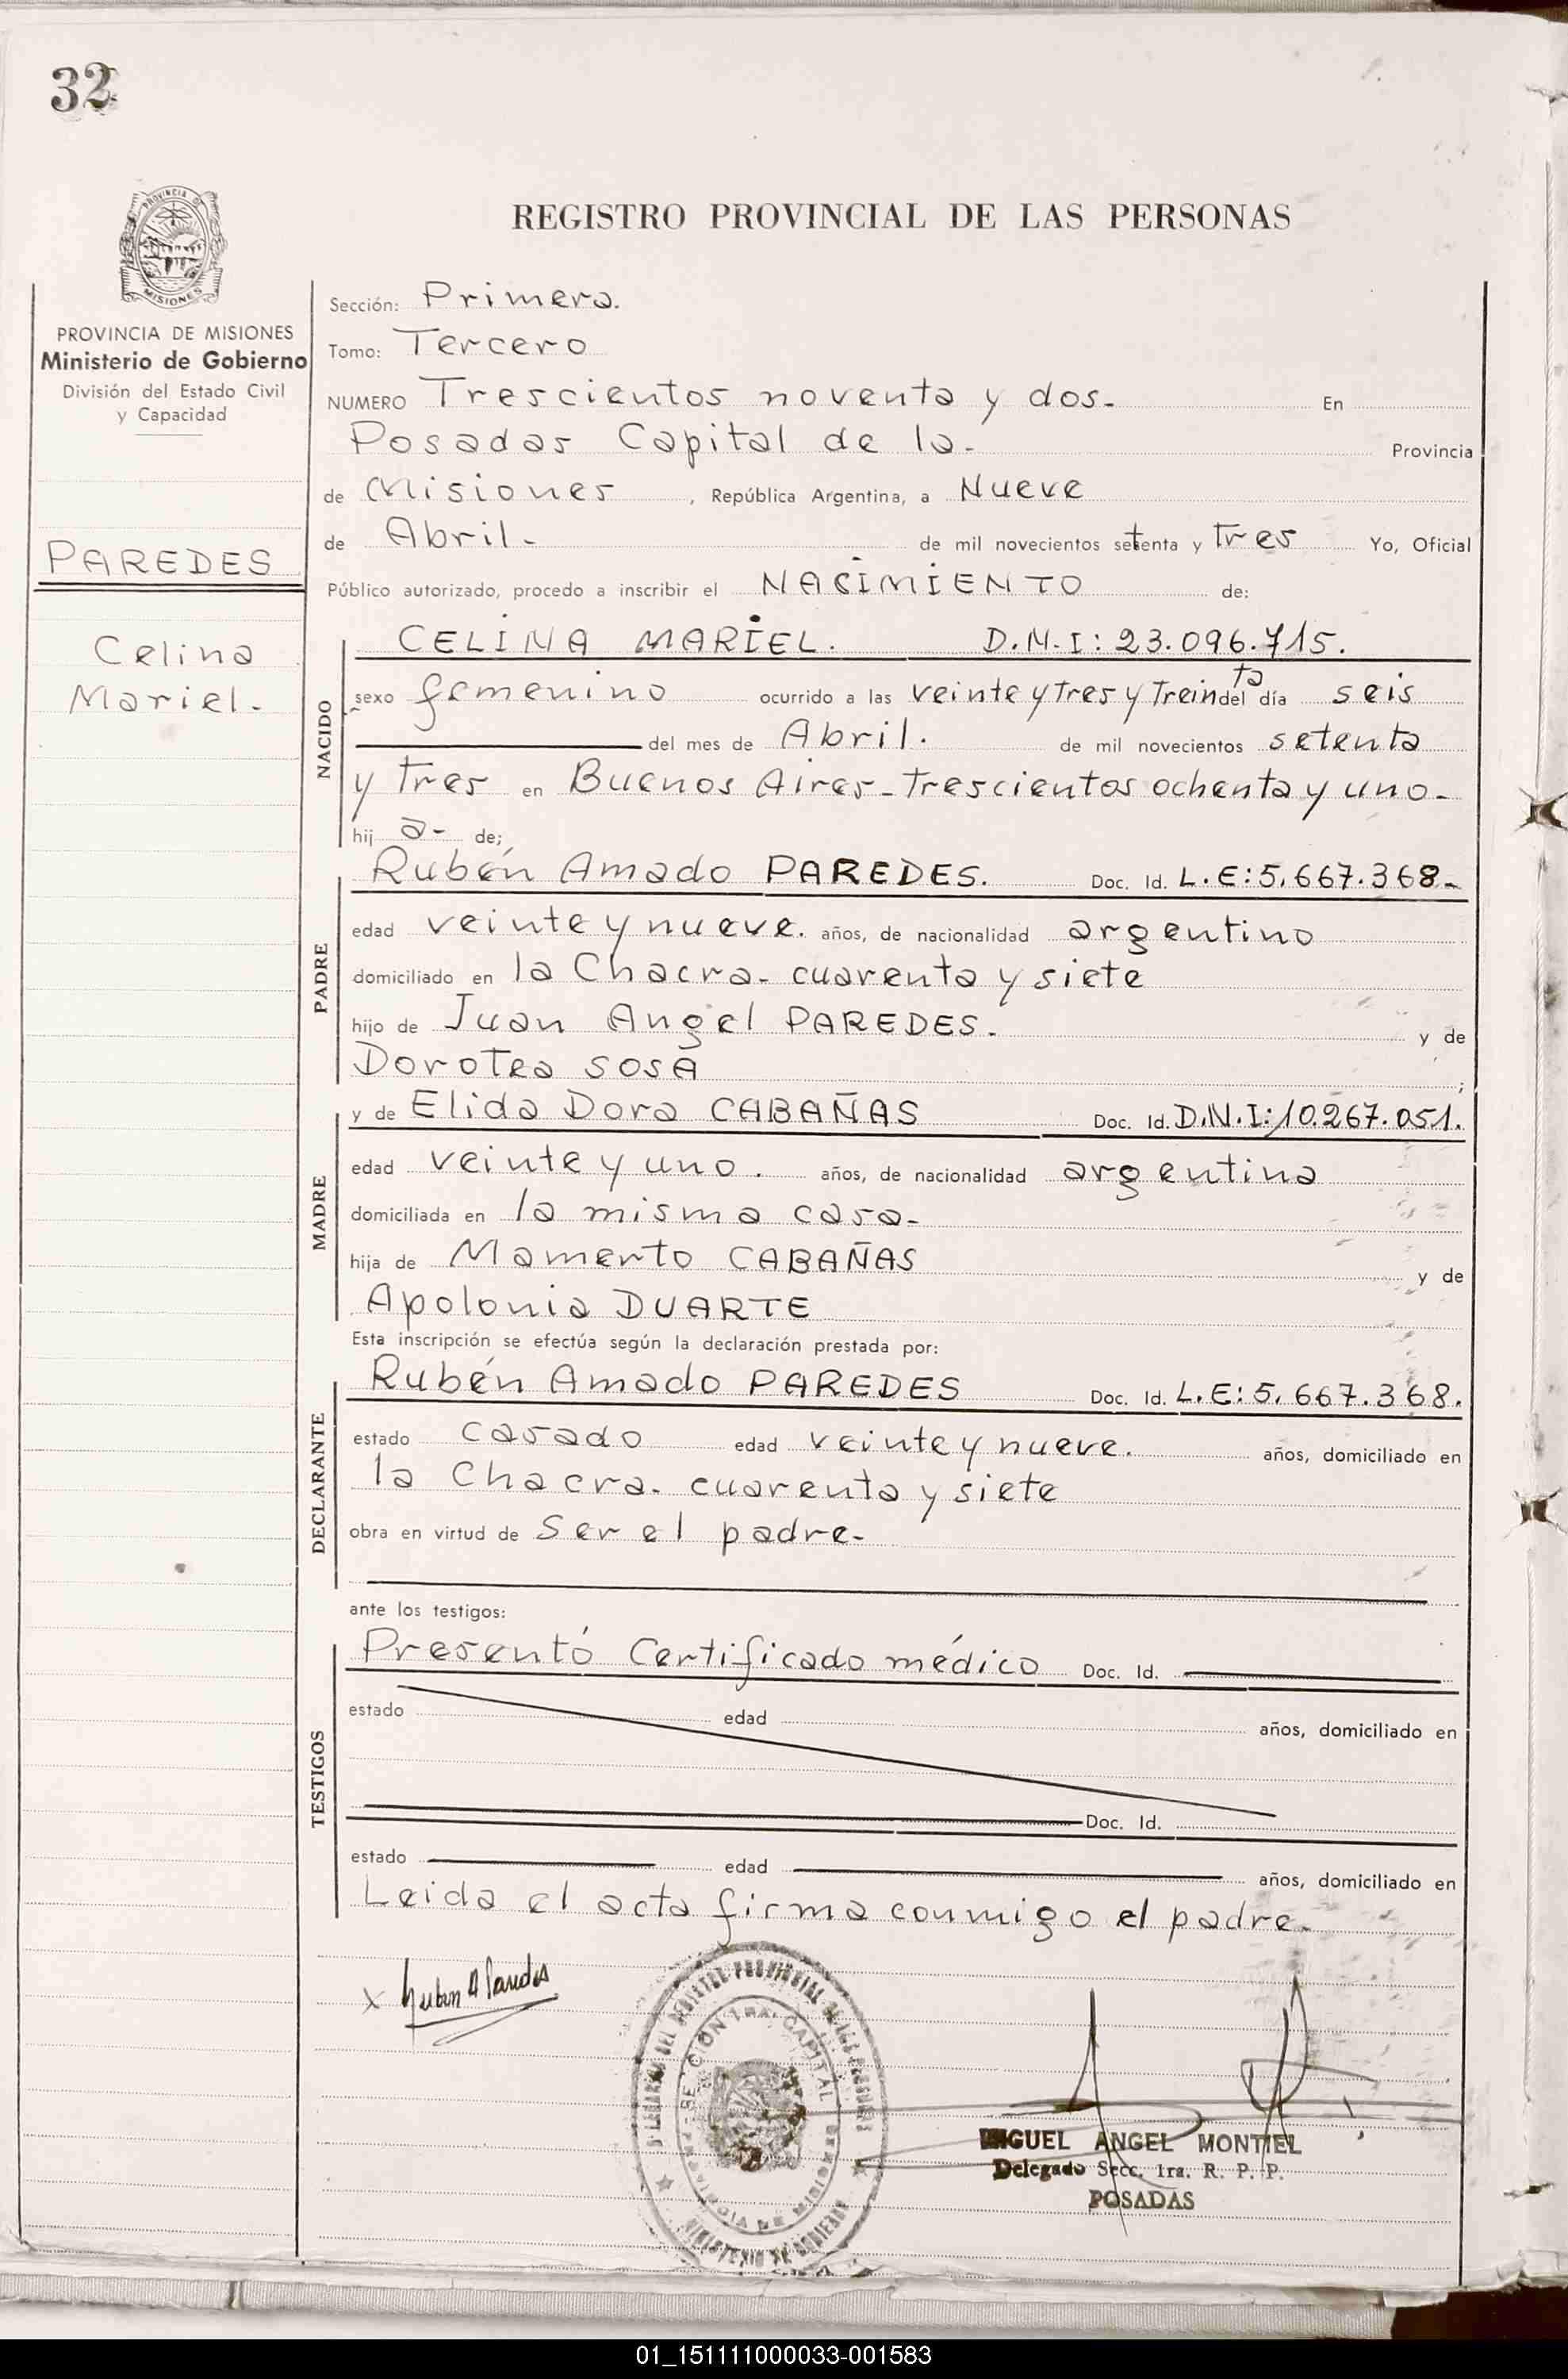 32
PROVINCIA DE
MISIONES
PROVINCIA DE MISIONES
Ministerio de Gobierno
División del Estado Civil
y Capacidad
PAREDES
Celina
Mariel.-
REGISTRO PROVINCIAL DE LAS PERSONAS
Sección: Primera.
Tomo: Tercero
NUMERO Trescientos noventa y dos.- En
Posadas Capital de la.- Provincia
de Misiones , República Argentina, a Nueve
de Abril.- de mil novecientos setenta y tres Yo, Oficial
Público autorizado, procedo a inscribir el NACIMIENTO de:
NACIDO
CELINA MARIEL. D.N.I: 23.096.715.
sexo femenino ocurrido a las veinte y tres y treinta del día seis
del mes de Abril. de mil novecientos setenta
y tres en Buenos Aires-trescientos ochenta y uno-
hij a- de;
PADRE
Rubén Amado PAREDES. Doc. Id. L.E:5.667.368-
edad veinte y nueve. años, de nacionalidad argentino
domiciliado en la Chacra- cuarenta y siete
hijo de Juan Angel PAREDES.- y de
Dorotea SOSA ;
MADRE
y de Elida Dora CABAÑAS Doc. Id. D.N.I:10.267.051.
edad veinte y uno. años, de nacionalidad argentina
domiciliada en la misma casa-
hija de Mamerto CABAÑAS y de
Apolonia DUARTE
Esta inscripción se efectúa según la declaración prestada por:
DECLARANTE
Rubén Amado PAREDES Doc. Id. L.E:5.667.368.
estado casado edad veinte y nueve. años, domiciliado en
la Chacra. cuarenta y siete
obra en virtud de Ser el padre-
ante los testigos:
TESTIGOS
Presentó Certificado médico Doc. Id.
estado edad años, domiciliado en
Doc. Id.
estado edad años, domiciliado en
Leida el acta firma conmigo el padre.-
x Ruben A Paredes
REGISTRO PROVINCIAL DE LAS PERSONAS
SECCION 1RA. CAPITAL
PROVINCIA DE MISIONES
MINISTERIO DE GOBIERNO
MIGUEL ANGEL MONTIEL
Delegado Secc. 1ra. R. P. P.
POSADAS
01_151111000033-001583